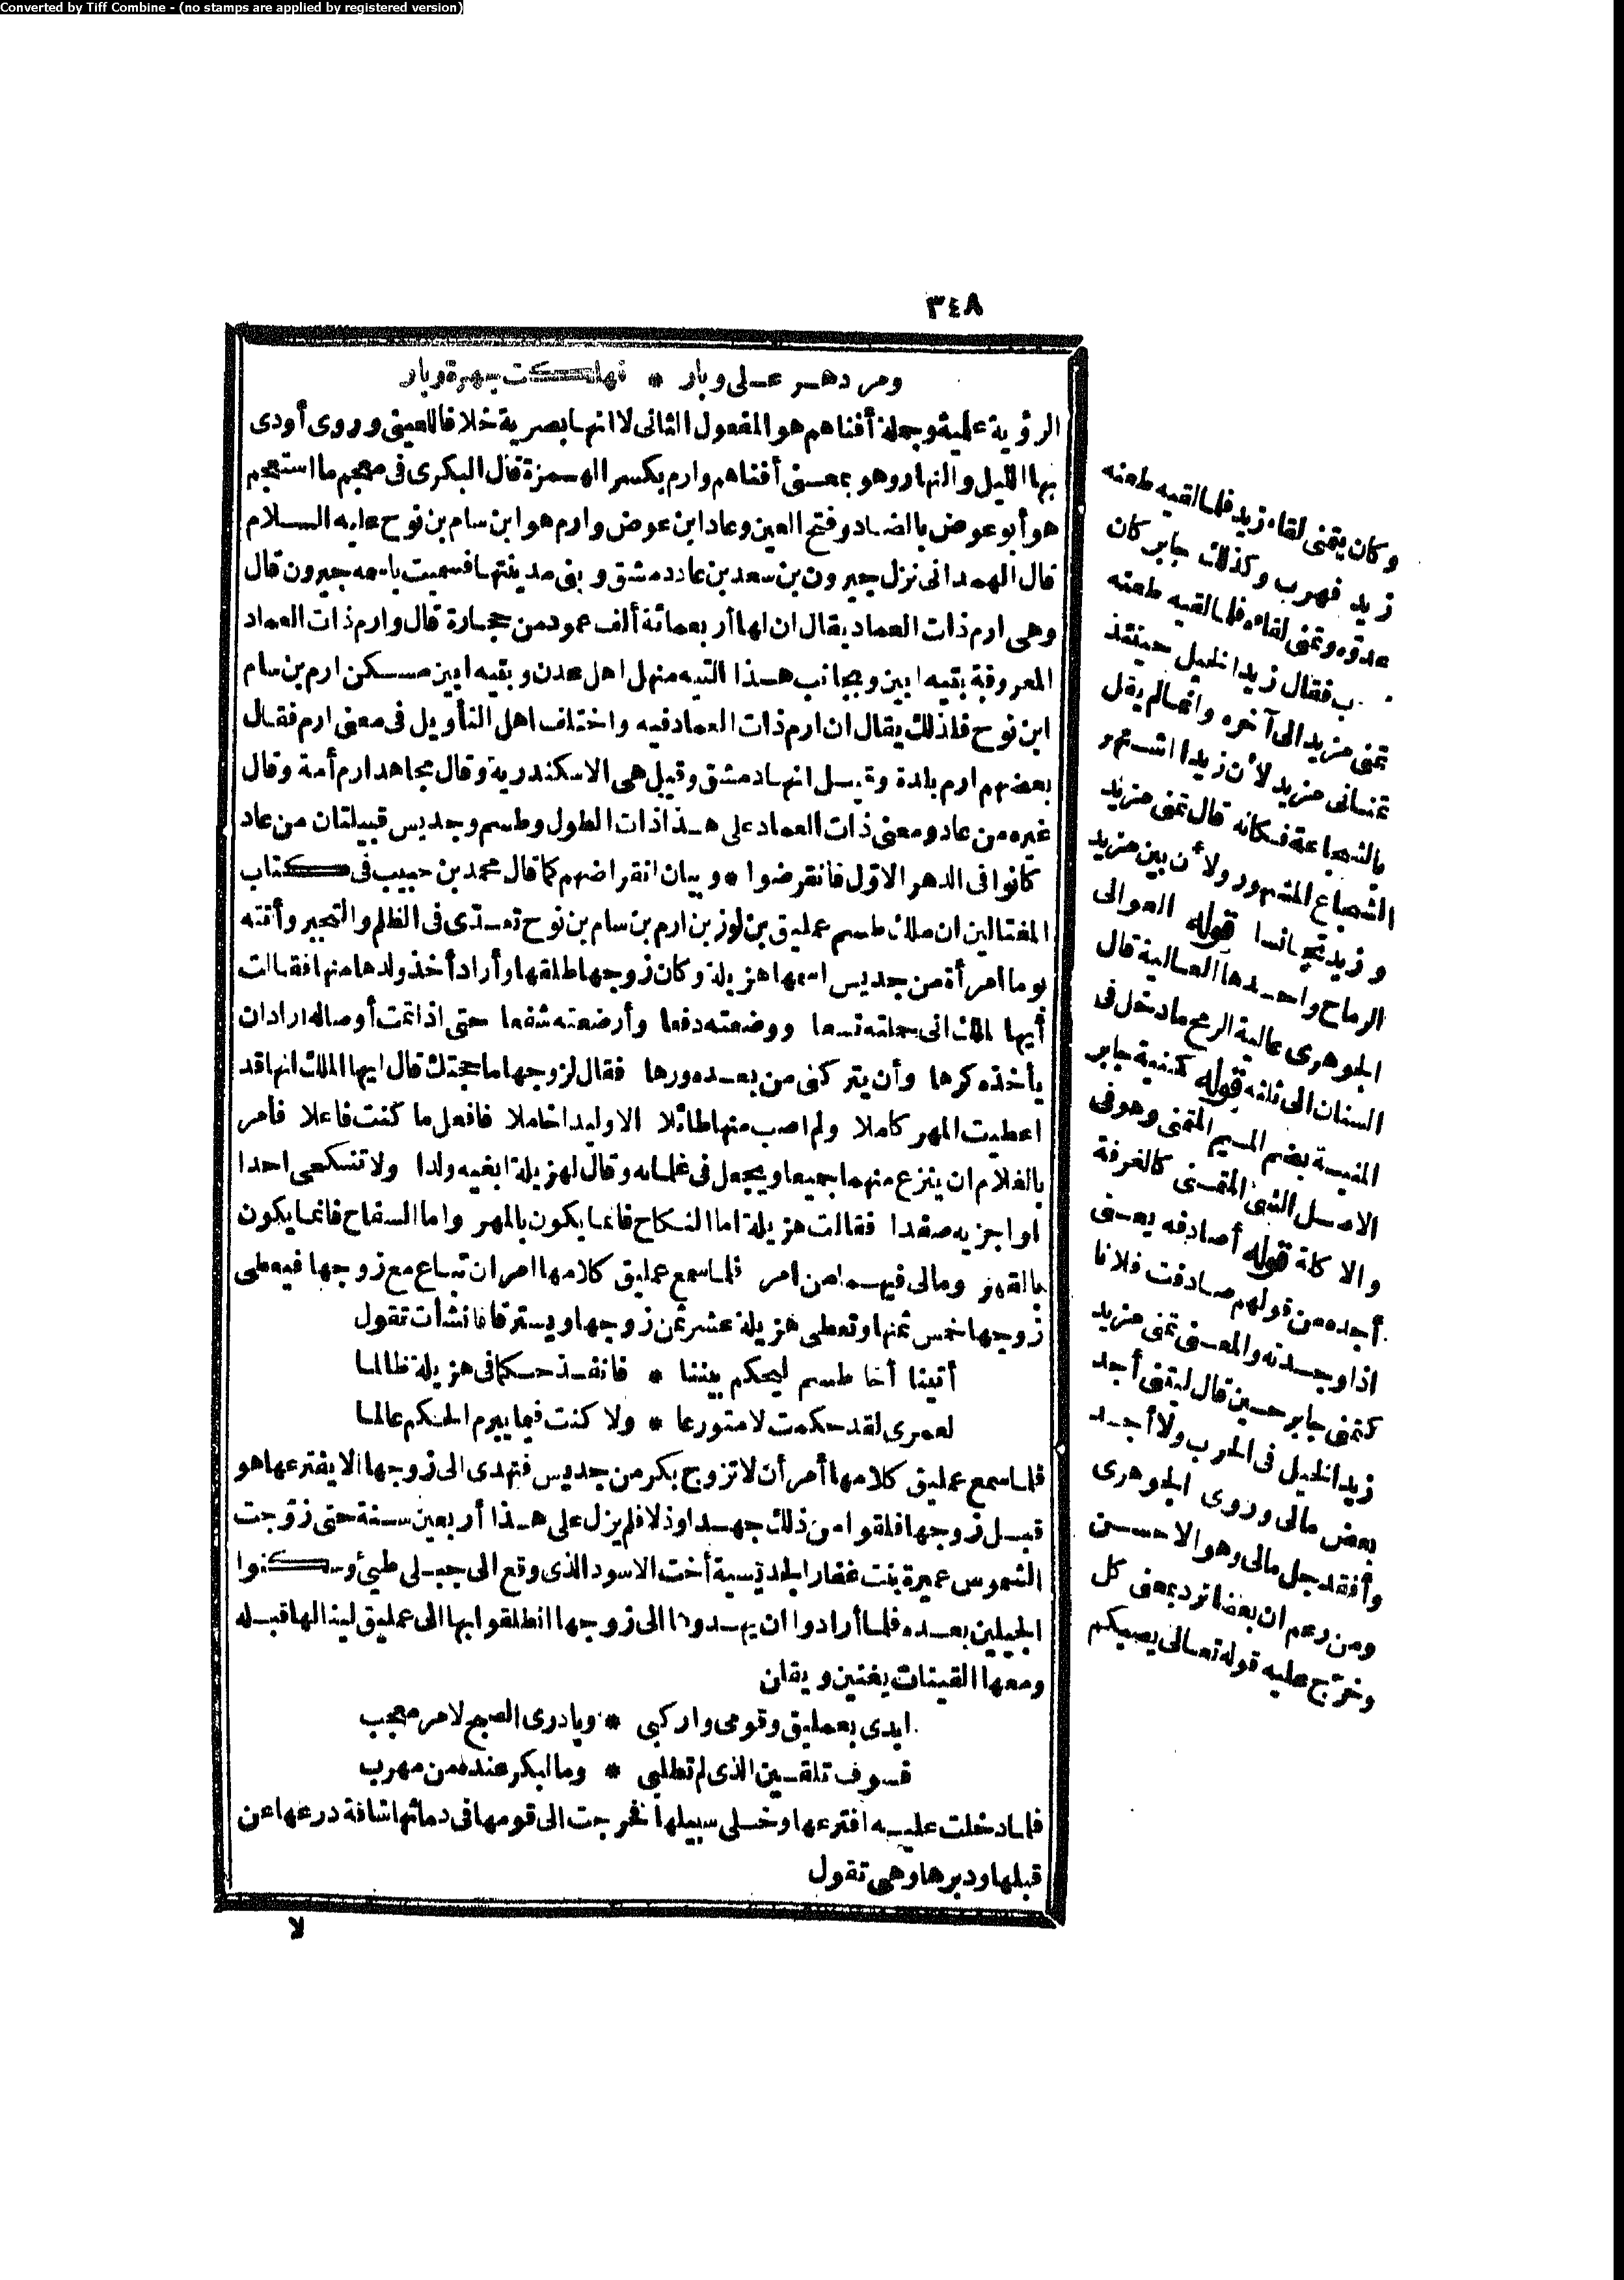 Converted by Tiff Combine - (no stamps are applied by registered version)
٣٤٨
ومر دهر على وبار * فهلكت جهرة وبار
الرؤية علمية وجملة أفناهم هو المفعول الثانى لا انها بصرية خلافا للعينى وروى أودى
بها الليل والنهار وهو بمعنى أفناهم وارم بكسر الهمزة قال البكرى فى معجم ما استعجم
هو أبو عوض بالضاد وفتح العين وعاد ابن عوض وارم هو ابن سام بن نوح عليه السلام
قال الهمدانى نزل جيرون بن سعد بن عاد دمشق وبنى مدينتها فسميت باسمه جيرون قال
وهى ارم ذات العماد يقال ان لها أربعمائة ألف عمود من حجارة قال وارم ذات العماد
المعروفة بتيه ابين وبجانب هذا التيه منهل اهل عدن وبتيه ابين مسكن ارم بن سام
ابن نوح فلذلك يقال ان ارم ذات العماد فيه واختلف اهل التأويل فى معنى ارم فقال
بعضهم ارم بلدة وقيل انها دمشق وقيل هى الاسكندرية وقال مجاهد ارم أمة وقال
غيره من عاد ومعنى ذات العماد على هذا ذات الطول وطسم وجديس قبيلتان من عاد
كانوا فى الدهر الاوّل فانقرضوا * وبيان انقراضهم كما قال محمد بن حبيب فى كتاب
المغتالين ان ملك طسم عمليق بن لوز بن ارم بن سام بن نوح تعدّى فى الظلم والتجبر وأتته
يوما امرأة من جديس اسمها هزيلة وكان زوجها طلقها وأراد أخذ ولدها منها فقالت
أيها الملك انى حملته تسعا ووضعته دفعا وأرضعته شفعا حتى اذا تمت أوصاله اراد ان
يأخذه كرها وأن يتركنى من بعده ورها فقال لزوجها ما حجتك قال ايها الملك انها قد
اعطيت المهر كاملا ولم اصب منها طائلا الا وليدا خاملا فافعل ما كنت فاعلا فأمر
بالغلام ان ينزع منهما جميعا ويجعل فى غلمانه وقال لهزيلة ابغيه ولدا ولا تنكحى احدا
او اجزيه صفدا فقالت هزيلة اما النكاح فانما يكون بالمهر واما السفاح فانما يكون
بالقهر ومالى فيهما من امر فلما سمع عمليق كلامها امر ان تباع مع زوجها فيعطى
زوجها خمس ثمنها وتعطى هزيلة عشر ثمن زوجها ويسترقا فانشأت تقول
أتينا أخا طسم ليحكم بيننا * فانفذ حكما فى هزيلة ظالما
لعمرى لقد حكمت لا متورعا * ولا كنت فيما يبرم الحكم عالما
فلما سمع عمليق كلامها أمر أن لا تزوج بكر من جديس فتهدى الى زوجها الا يفترعها هو
قبل زوجها فلقوا من ذلك جهدا وذلا فلم يزل على هذا أربعين سنة حتى زوّجت
الشموس عميرة بنت غفار الجديسية أخت الاسود الذى وقع الى جبلى طيئ وسكنوا
الجبلين بعده فلما أرادوا ان يهدوها الى زوجها انطلقوا بها الى عمليق لينالها قبله
ومعها القينات يغنين ويقلن
ابدى بعمليق وقومى واركبى * وبادرى الصبح لامر معجب
فسوف تلقين الذى لم تطلبى * وما لبكر عنده من مهرب
فلما دخلت عليه افترعها وخلى سبيلها فخرجت الى قومها فى دمائها شاقة درعها عن
قبلها ودبرها وهى تقول
لا
وكان يتمنى لقاء زيد فلما لقيه طعنه
زيد فهرب وكذلك جابر كان
عدوّه وتمنى لقاءه فلما لقيه طعنه
ب فقال زيد الخيل حينئذ
تمنى مزيد الى آخره وانما لم يقل
تمنانى مزيد لأن زيدا اشتهر
بالشجاعة فكأنه قال تمنى مزيد
الشجاع المشهور ولأن بين مزيد
وزيد تجانسا قوله العوالى
الرماح واحدها العالية قال
الجوهرى عالية الرمح ما دخل فى
السنان الى ثلثه قوله كمنية جابر
المنية بضم الميم التمنى وهو فى
الاصل الشئ المتمنى كالغرفة
والاكلة قوله أصادفه يعنى
أجده من قولهم صادفت فلانا
اذا وجدته والمعنى تمنى مزيد
كتمنى جابر حين قال ليتنى أجد
زيد الخيل فى الحرب ولا أجد
بعض مالى وروى الجوهرى
وأفقد جل مالى وهو الاحسن
ومن زعم ان بعضا ترد بمعنى كل
وخرّج عليه قوله تعالى يصبكم